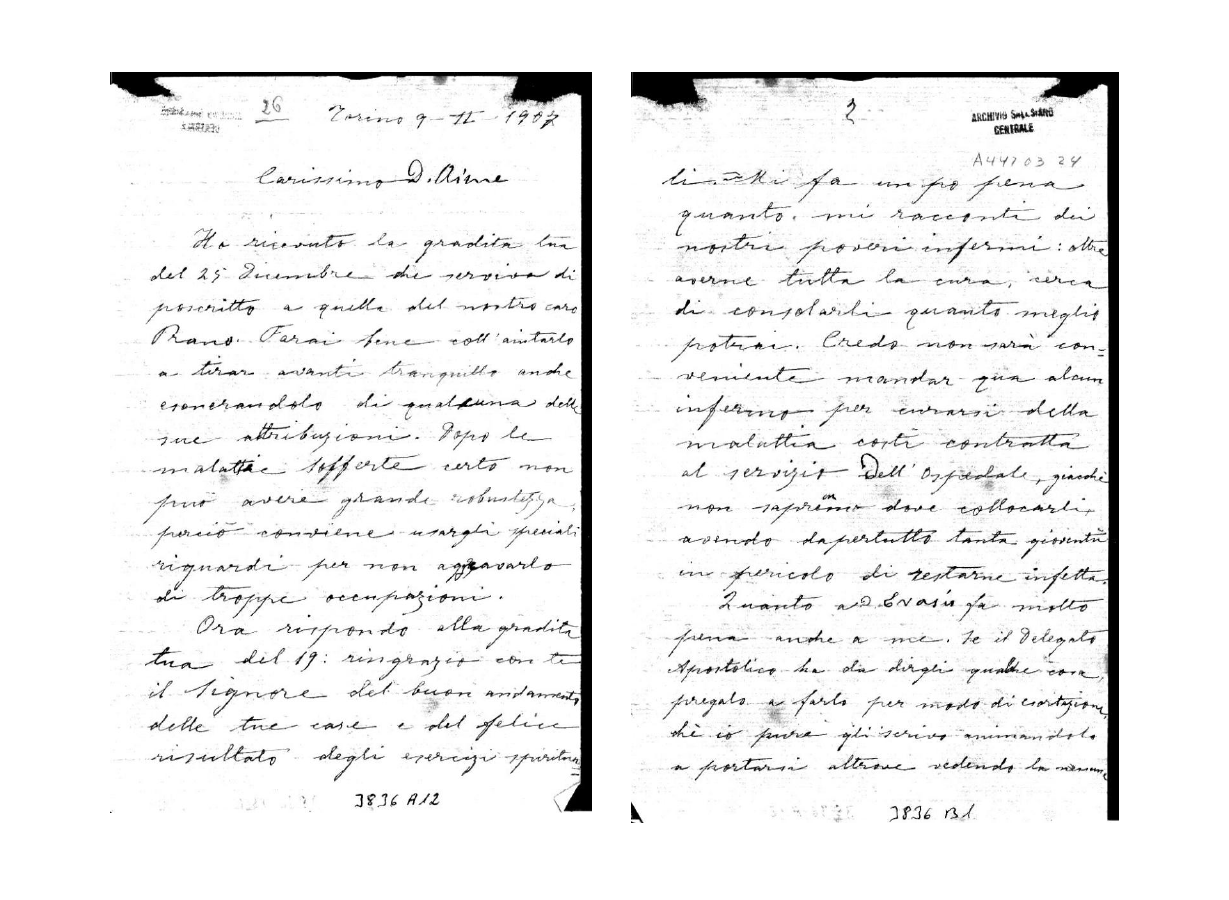 26
Torino 9-II-1907
Carissimo D. Aime
Ho ricevuto la gradita tua
del 25 Dicembre che serviva di
poscritto a quella del nostro caro
Farai bene coll'aiutarlo
a tirar avanti tranquillo anche
esonerandolo di qualcuna delle
sue attribuzioni. Dopo le
malattie sofferte certo non
può avere grande robustezza,
perciò conviene usargli speciali
riguardi per non aggravarlo
di troppe occupazioni.
Ora rispondo alla gradita
tua del 19: ringrazio con te
il Signore del buon andamento
delle tue case e del felice
risultato degli esercizi spiritua
3836 A12
2
ARCHIVIO SALESIANO
CENTRALE
A4470324
li. = Mi fa un po pena
quanto mi racconti dei
nostri poveri infermi: oltre
averne tutta la cura, cerca
di consolarli quanto meglio
potrai. Credo non sarà con=
veniente mandar qua alcun
infermo per curarsi della
malattia costì contratta
al servizio Dell'Ospedale, giacchè
non sapremmo dove collocarli,
avendo dapertutto tanta gioventù
in pericolo di restarne infetta.
Quanto a D Evasio fa molto
pena anche a me. Se il Delegato
Apostolico ha da dirgli qualche cosa,
pregalo a farlo per modo di esortazione,
chè io pure gli scrivo animandolo
a portarsi altrove vedendo la
3836 B1